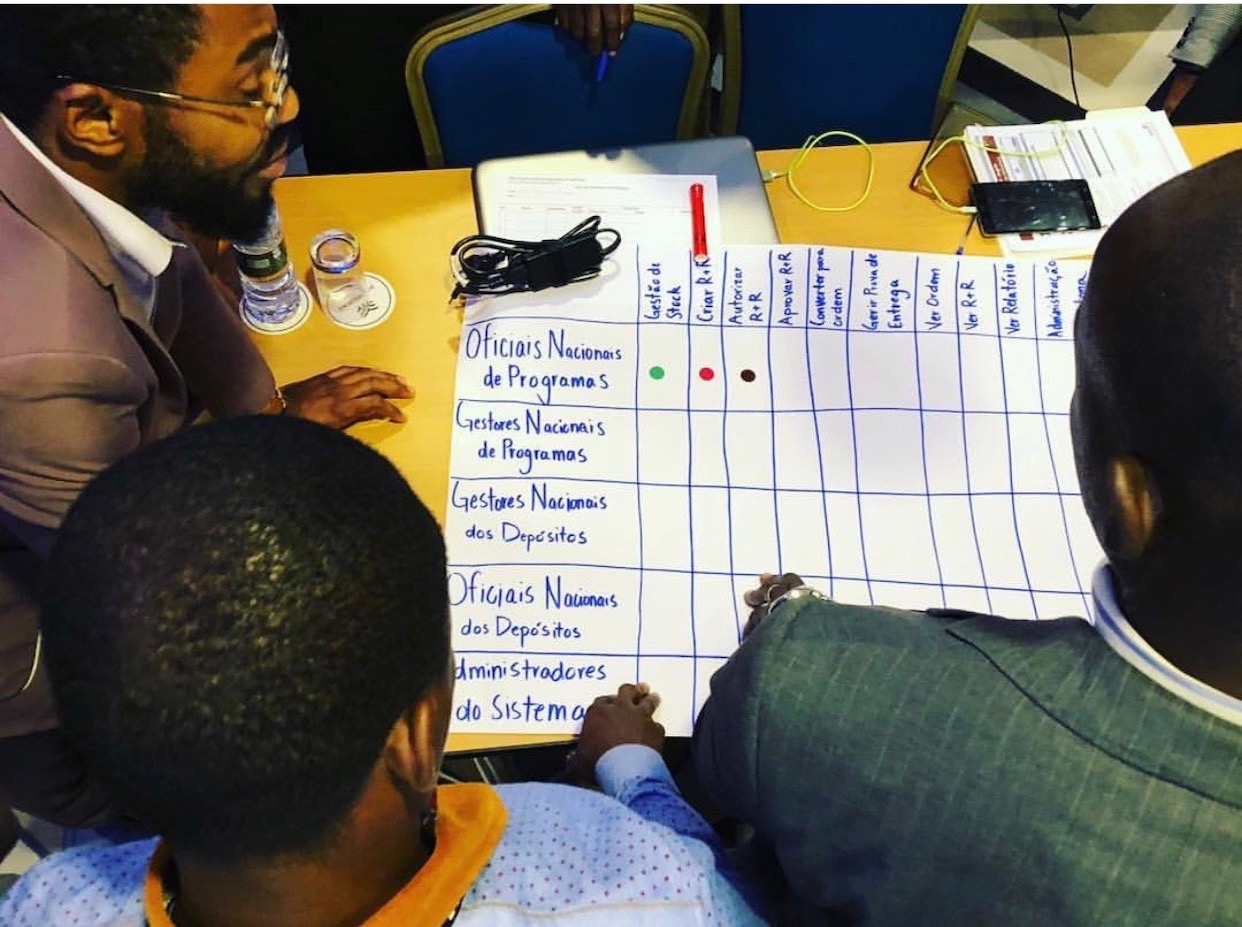 Gestão de
Stock
Criar R+R
Autorizar
R+R
Aprovar R+R
Converter para
ordem
Gerir Prova de
Entrega
Ver Ordem
Ver R+R
Ver Relatório
Administração
Oficiais Nacionais
de Programas
Gestores Nacionais
de Programas
Gestores Nacionais
dos Depósitos
Oficiais Nacionais
dos Depósitos
dministradores
do Sistema